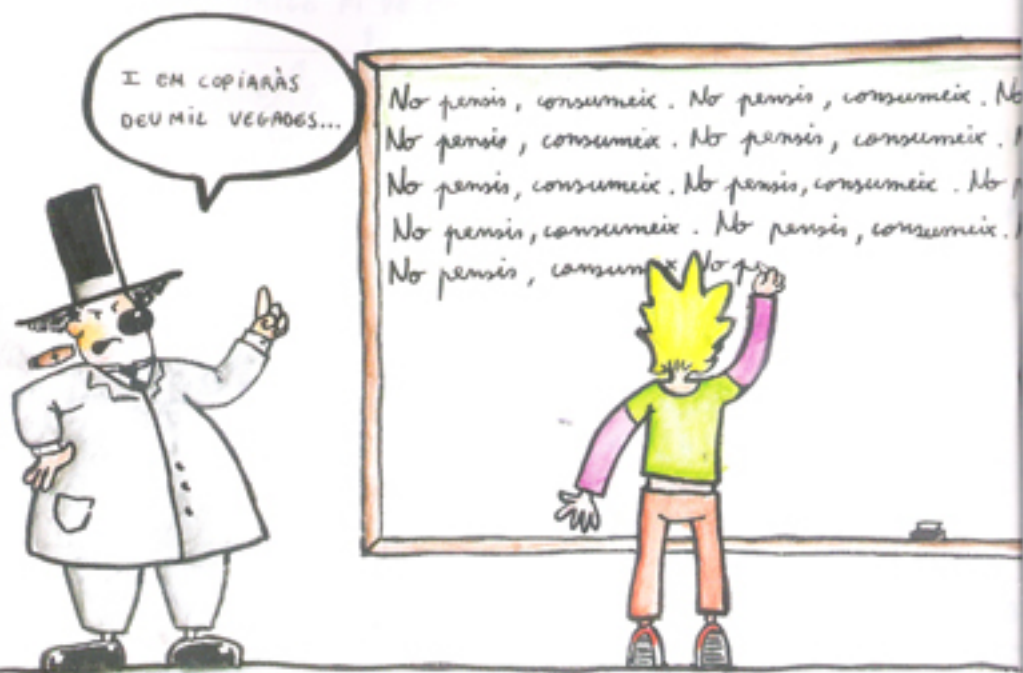 I EM COPIARÀS
DEU MIL VEGADES...
No pensis, consumeix. No pensis, consumeix. No
No pensis, consumeix. No pensis, consumeix.
No pensis, consumeix. No pensis, consumeix. No
No pensis, consumeix. No pensis, consumeix.
No pensis, consumeix No pe